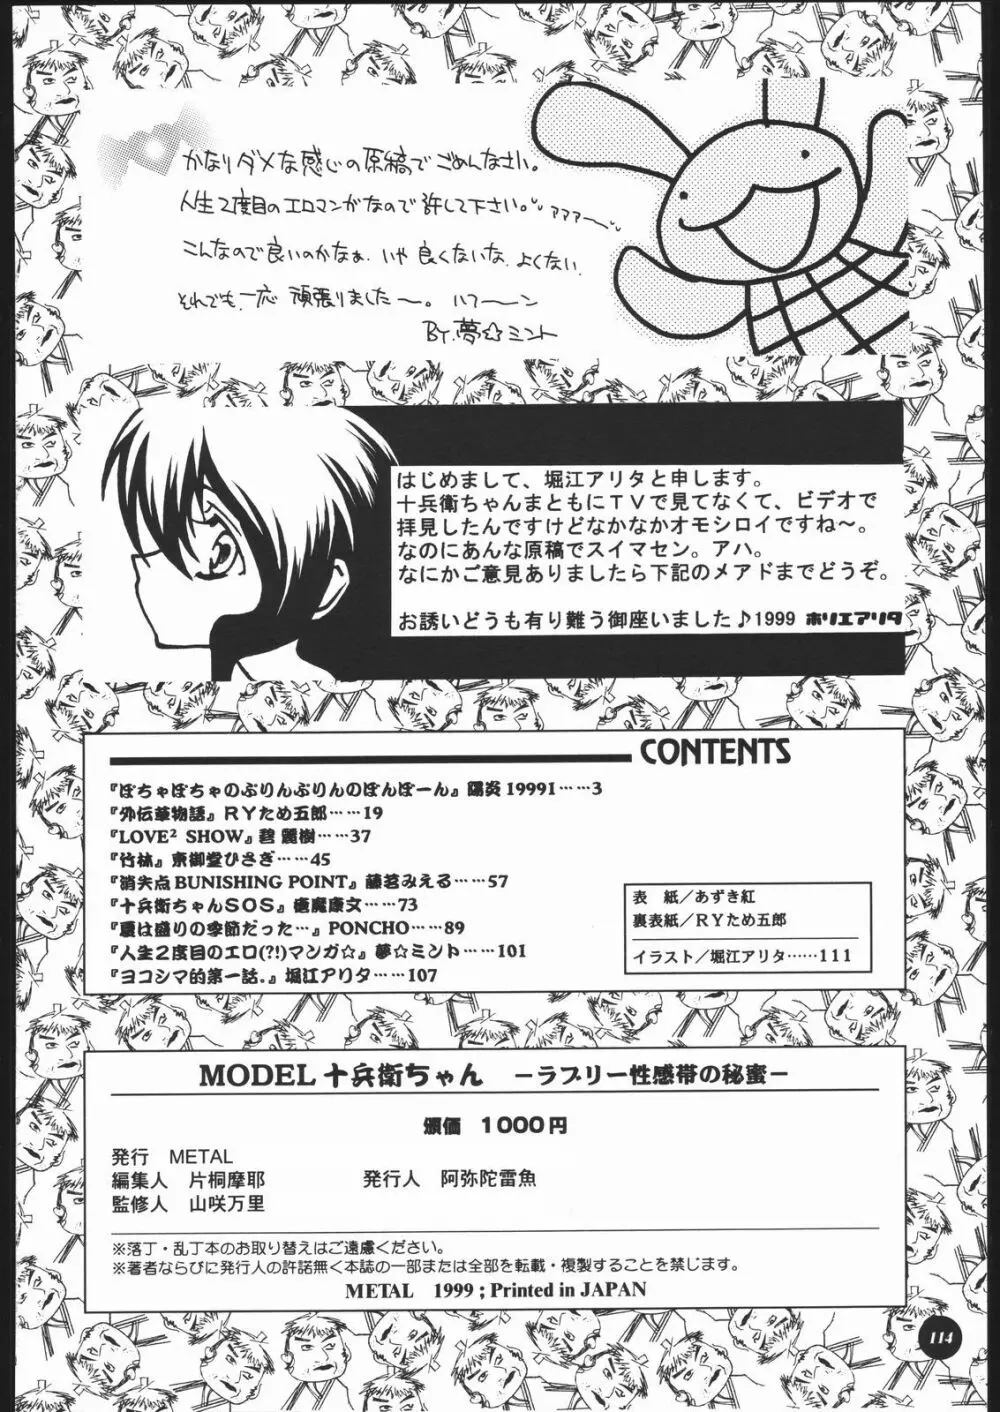 かなりダメな感じの原稿でごめんなさい。
人生2度目のエロマンガなので許して下さい。アアア〜
こんなので良いのかなぁ、いや良くないな、よくない、
それでも一応頑張りました〜。ハフーン
By.夢☆ミント
はじめまして、堀江アリタと申します。
十兵衛ちゃんまともにTVで見てなくて、ビデオで
拝見したんですけどなかなかオモシロイですね〜。
なのにあんな原稿でスイマセン。アハ。
なにかご意見ありましたら下記のメアドまでどうぞ。
お誘いどうも有り難う御座いました♪1999 ホリエアリタ
CONTENTS
『ぽちゃぽちゃのぷりんぷりんのぽんぽーん』陽炎1999I……3
『外伝華物語』RYため五郎……19
『LOVE² SHOW』碧 麗樹……37
『竹林』京御堂ひさぎ……45
『消失点BUNISHING POINT』藤茗みえる……57
『十兵衛ちゃんSOS』極魔康文……73
『夏は盛りの季節だった…』PONCHO……89
『人生2度目のエロ(?!)マンガ☆』夢☆ミント……101
『ヨコシマ的第一話.』堀江アリタ……107
表 紙/あずき紅
裏表紙/RYため五郎
イラスト/堀江アリタ……111
MODEL十兵衛ちゃん −ラブリー性感帯の秘蜜−
頒価 1000円
発行 METAL
編集人 片桐摩耶 発行人 阿弥陀雷魚
監修人 山咲万里
※落丁・乱丁本のお取り替えはご遠慮ください。
※著者ならびに発行人の許諾無く本誌の一部または全部を転載・複製することを禁じます。
METAL 1999 ; Printed in JAPAN
114